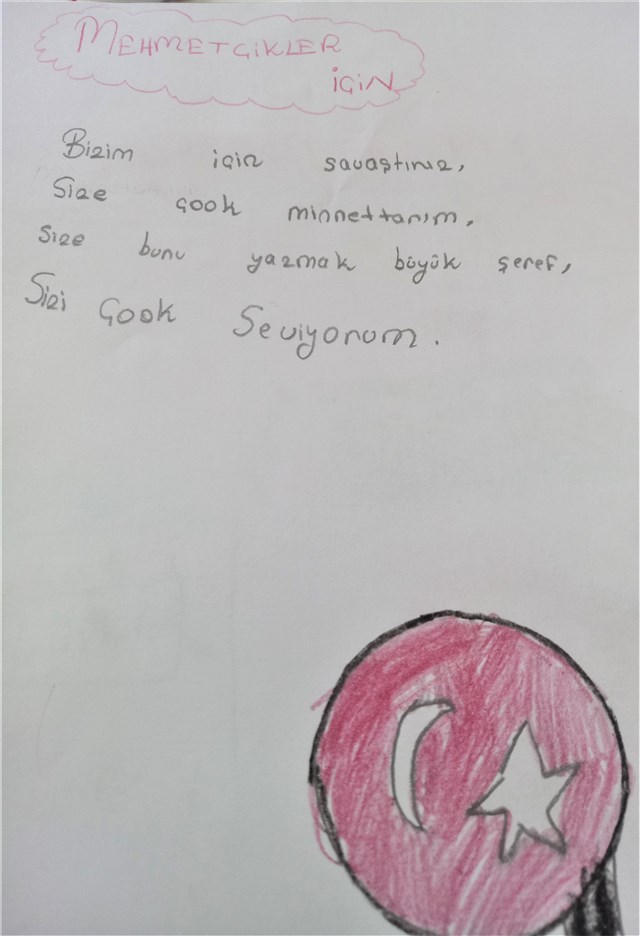 MEHMETÇİKLER
İÇİN
Bizim için savaştınız,
Size çook minnettarım,
Size bunu yazmak büyük şeref,
Sizi Çook Seviyorum.